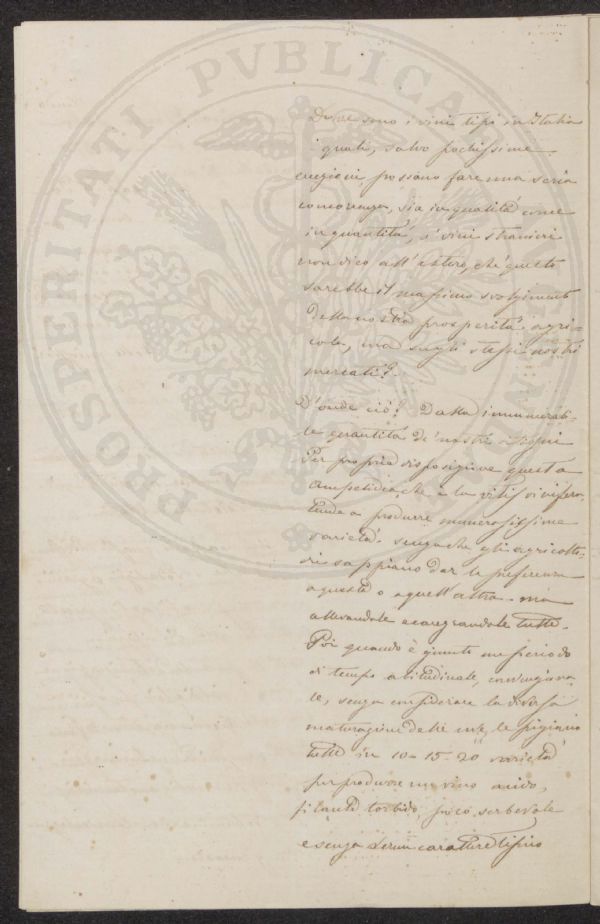 PROSPERITATI PVBLICAE
Dove sono i vini tipi in Italia
i quali, salvo pochissime
eccezioni, possano fare una seria
concorrenza, sia in qualità come
in quantità, a' vini stranieri
non dico all'estero, chè questo
sarebbe il massimo svolgimento
della nostra prosperità agri-
cola, ma sugli stessi nostri
mercati?
D'onde ciò? Dalla innumerabi-
le quantità de' nostri vitigni
Per propria disposizione questa
Ampelidea, che è la vitis vinifera
tende a produrre numerosissime
varietà senza che gli agricolto-
ri sappiano dar la preferenza
a questa o a quell'altra ma
allevandole tutte.
Poi quando è giunto un periodo
di tempo
senza considerare la diversa
maturazione delle uve, le pigiano
tutte in 10-15-20 varietà
per produrre un vino acido,
filante torbido, poco serbevole
e senza verun carattere tipico